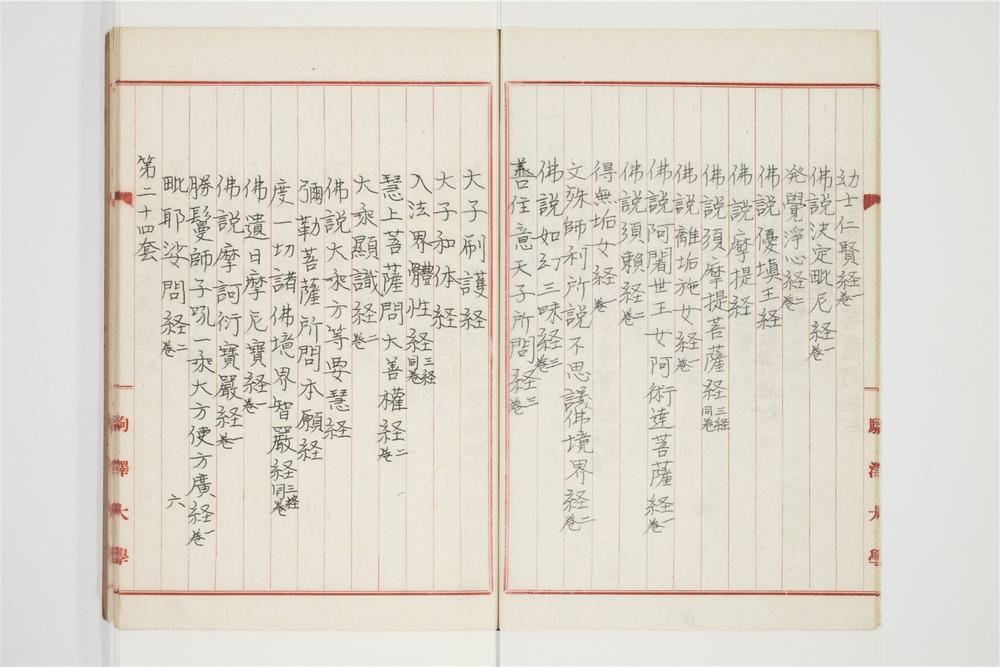 幼士仁賢経 卷一
佛説決定毗尼経 卷一
発覺淨心経 卷二
佛説優填王経
佛説摩提経
佛説須摩提菩薩経 三経同卷
佛説離垢施女経 卷一
佛説阿闍世王女阿術達菩薩経 卷一
佛説須頼経 卷二
得無垢女経 卷一
文殊師利所説不思議佛境界経 卷二
佛説如幻三昧経 卷三
善住意天子所問経 卷三
大子刷護経
大子和休経
入法界體性経 三経同卷
慧上菩薩問大善權経 卷二
大乘顯識経 卷二
佛説大乘方等要慧経
彌勒菩薩所問本願経
度一切諸佛境界智嚴経 三経同卷
佛遺日摩尼寶経 卷一
佛説摩訶衍寶嚴経 卷一
勝鬘師子吼一乘大方便方廣経 卷一
毗耶娑問経 卷二
第二十四套
六
駒澤大學
駒澤大學